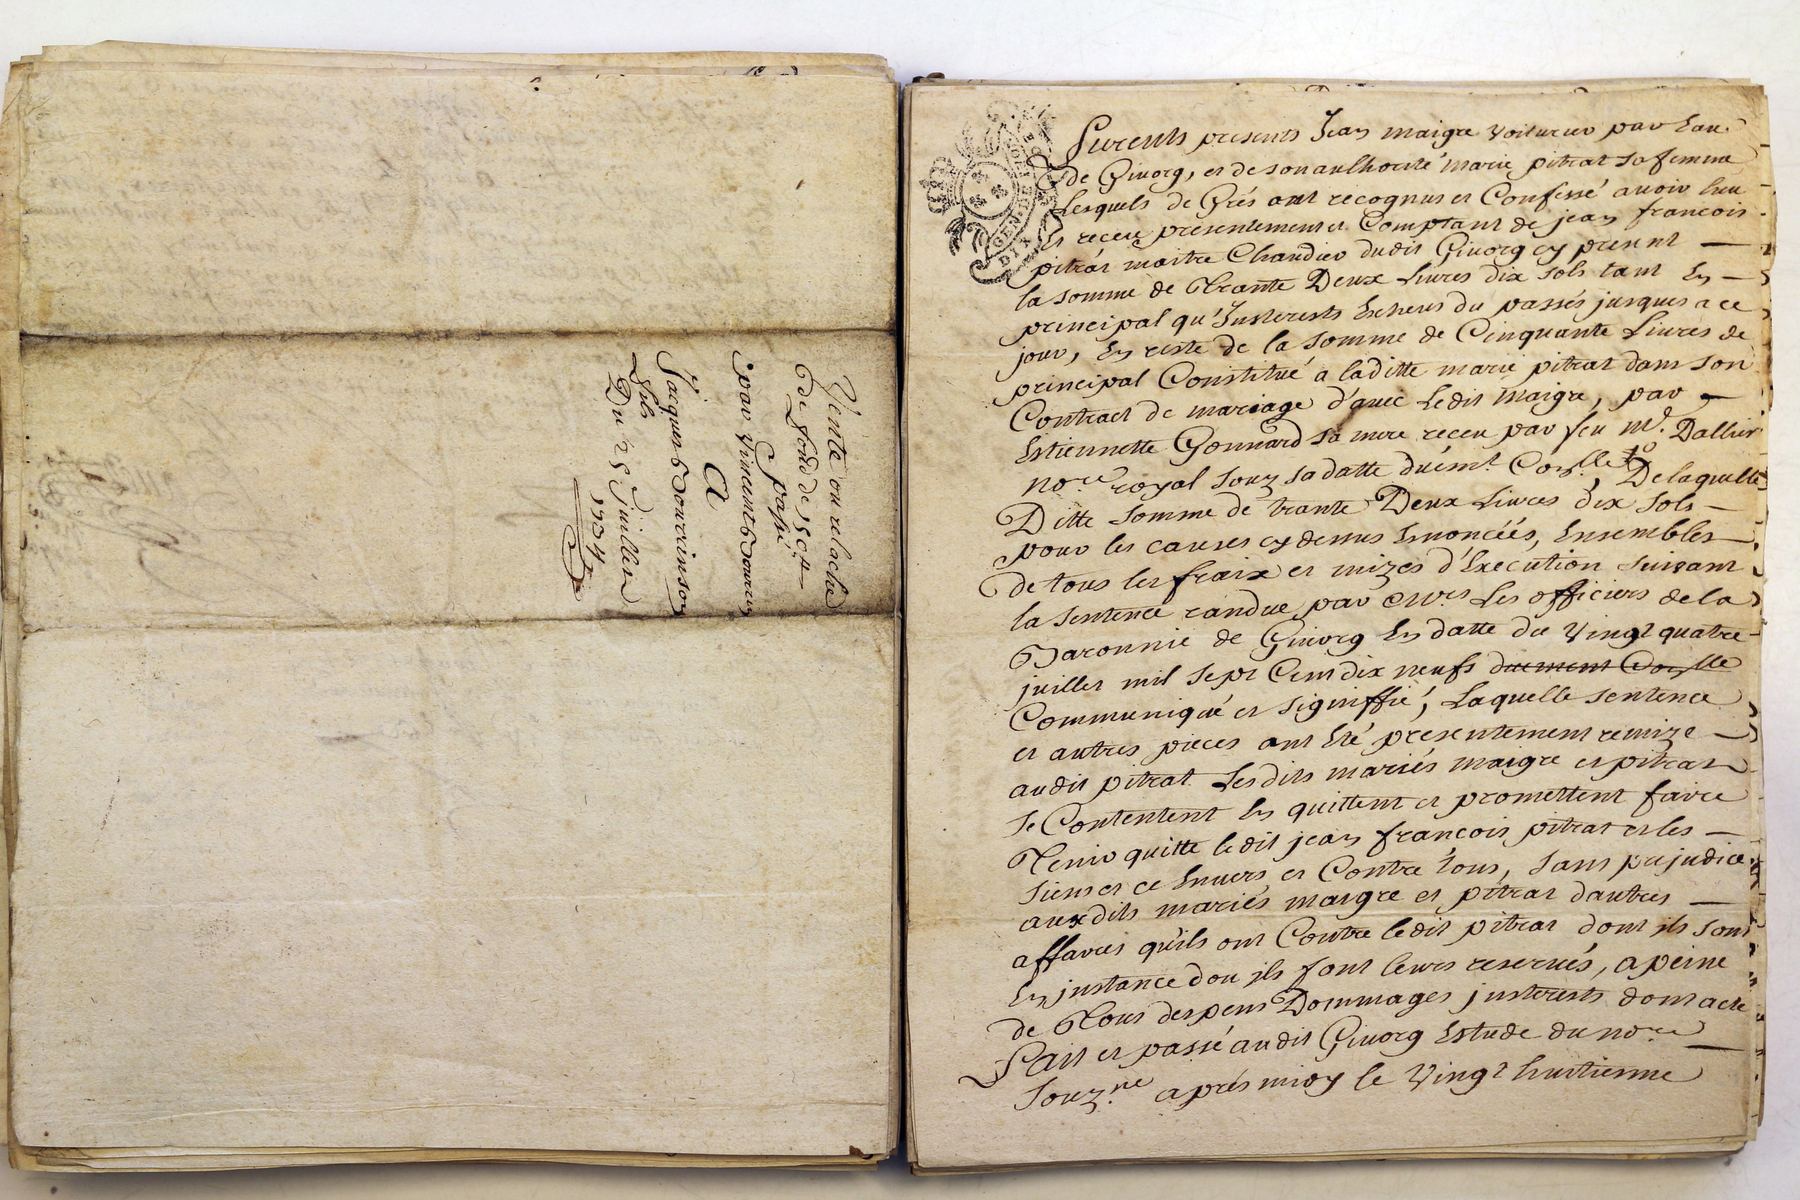 Vente ou relache
de fond de 150#
passé
par Vincent Bourrin
A
Jacques Bourrin son
fils
Du 25 Juillet
1734
Furents presents Jean maigre voiturier par eau
de Givorg, et de son authorité marie pitrat sa femme
Lesquels de Grés ont recognus et Confessé avoir heu
Et receu presentement et Comptant de jean francois
pitrat maitre Chandier dudit Givorg cy present
la somme de Trante Deux livres dix sols tant En
principal qu'Interests Echeus du passés jusques a ce
jour, En reste de la somme de Cinquante Livres de
principal Constitué a laditte marie pitrat dans son
Contract de mariage d'avec Ledit maigre, par
Estiennette Gonnard sa mere receu par feu Me. Dallier
nore royal souz sa datte duëmt. Conllé, De laquelle
Ditte somme de trante Deux Livres dix sols
pour les causes cy dessus Enoncéés, Ensembles
de tous les fraix et mizes d'Execution suivant
la sentence randue par Mrs Les officiers de la
Baronnie de Givorg En datte du Vingt quatre
juillet mil sept Cent dix neufs duement Conllé
Communiqué et signiffié, Laquelle sentence
et autres pieces ont Eté presentement remize
audit pitrat Lesdits mariés maigre et pitrat
se Contentent En quittent et promettent faire
Tenir quitte ledit jean francois pitrat et les
siens et ce Envers et Contre tous, sans prejudice
auxdits mariés maigre et pitrat dautres
affaires qu'ils ont Contre ledit pitrat dont ils sont
En instance dou ils font leurs reservés, a peine
de Tous despens Dommages interests dont acte
Fait et passé audit Givorg Estude du nore
souzné. aprés midy le Vingt huitiesme
GEN. DE LYON
DIX